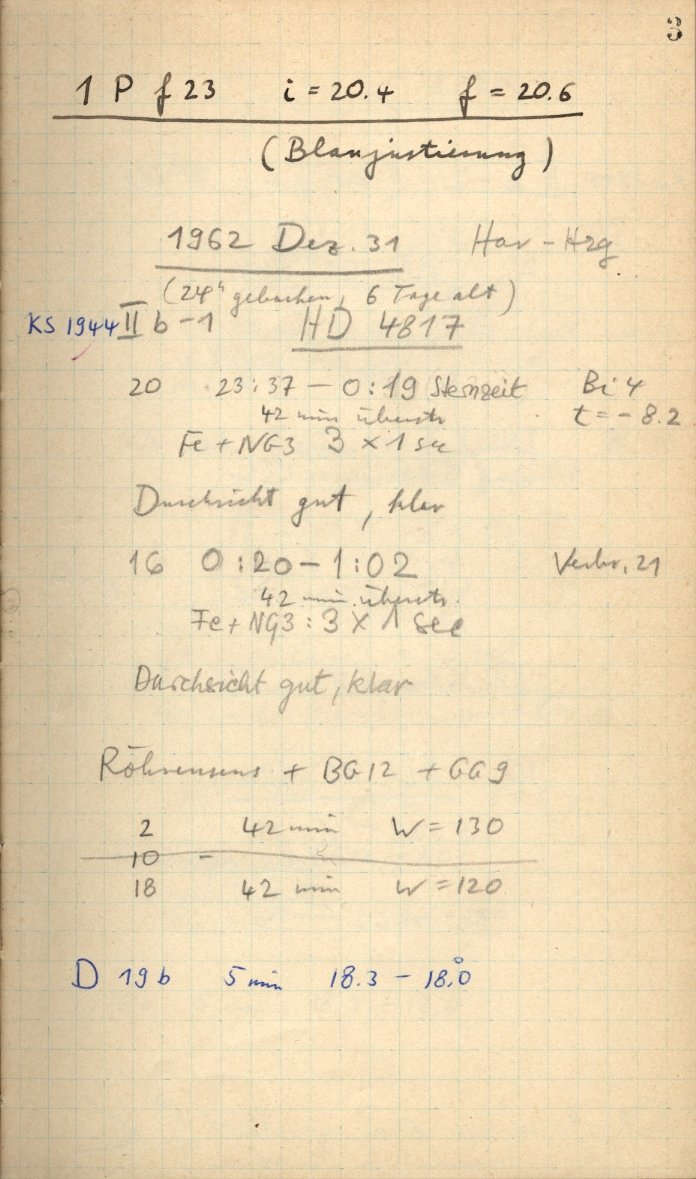 3
1 P f 23 i = 20.4 f = 20.6
(Blaujustierung)
1962 Dez. 31 Hav - Hzg
(24h gebacken, 6 Tage alt)
KS 1944 II b - 1 HD 4817
20 23:37 - 0:19 Sternzeit Bi 4
42 min überstr t = - 8.2
Fe + NG3 3 x 1 sec
Durchsicht gut, klar
16 0:20 - 1:02 21
42 min überstr.
Fe + NG3 : 3 x 1 sec
Durchsicht gut, klar
+ BG12 + GG9
2 42 min W = 130
10 -
18 42 min W = 120
D 19 b 5 min 18.3 - 18.0°